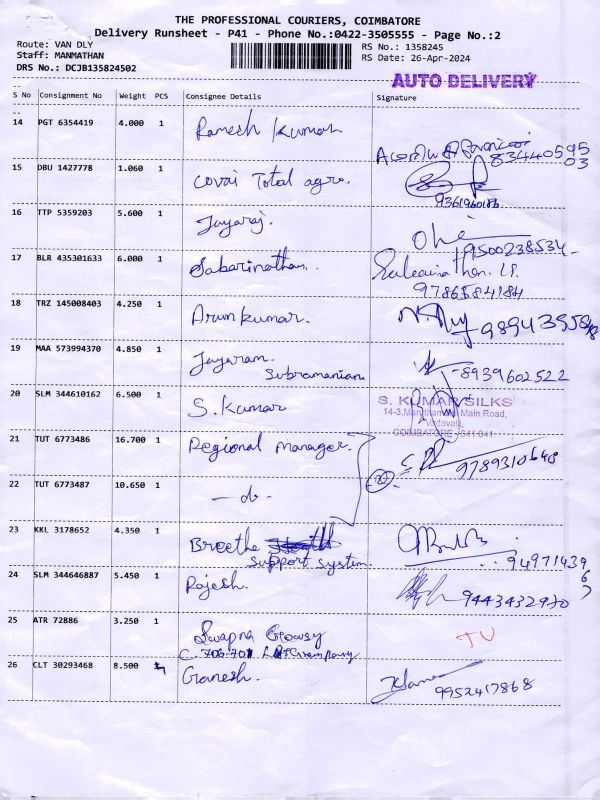 THE PROFESSIONAL COURIERS, COIMBATORE
Delivery Runsheet - P41 - Phone No.:0422-3505555 - Page No.:2
Route: VAN DLY
Staff: MANMATHAN
DRS No.: DCJB135824502
RS No.: 1358245
RS Date: 26-Apr-2024
AUTO DELIVERY
S No Consignment No Weight PCS Consignee Details Signature
14 PGT 6354419 4.000 1 Ramesh Kumar
15 DBU 1427778 1.060 1 Covai Total agro.
9361960186
16 TTP 5359203 5.600 1 Jayaraj.
9500238534
17 BLR 435301633 6.000 1 Sabarinathan.
9786584184
18 TRZ 145008403 4.250 1 Arunkumar.
19 MAA 573994370 4.850 1 Jayaram Subramanian
8939602522
20 SLM 344610162 6.500 1 S. Kumar
S. KUMAR SILKS
Main Road,
Vadavalli,
COIMBATORE - 641 041
21 TUT 6773486 16.700 1 Regional manager.
9789310648
22 TUT 6773487 10.650 1 - do -
23 KKL 3178652 4.350 1 Breethe
Support System
24 SLM 344646887 5.450 1 Rajesh.
9443432970
25 ATR 72886 3.250 1 Swapna
26 CLT 30293468 8.500 Ganesh.
9952417868